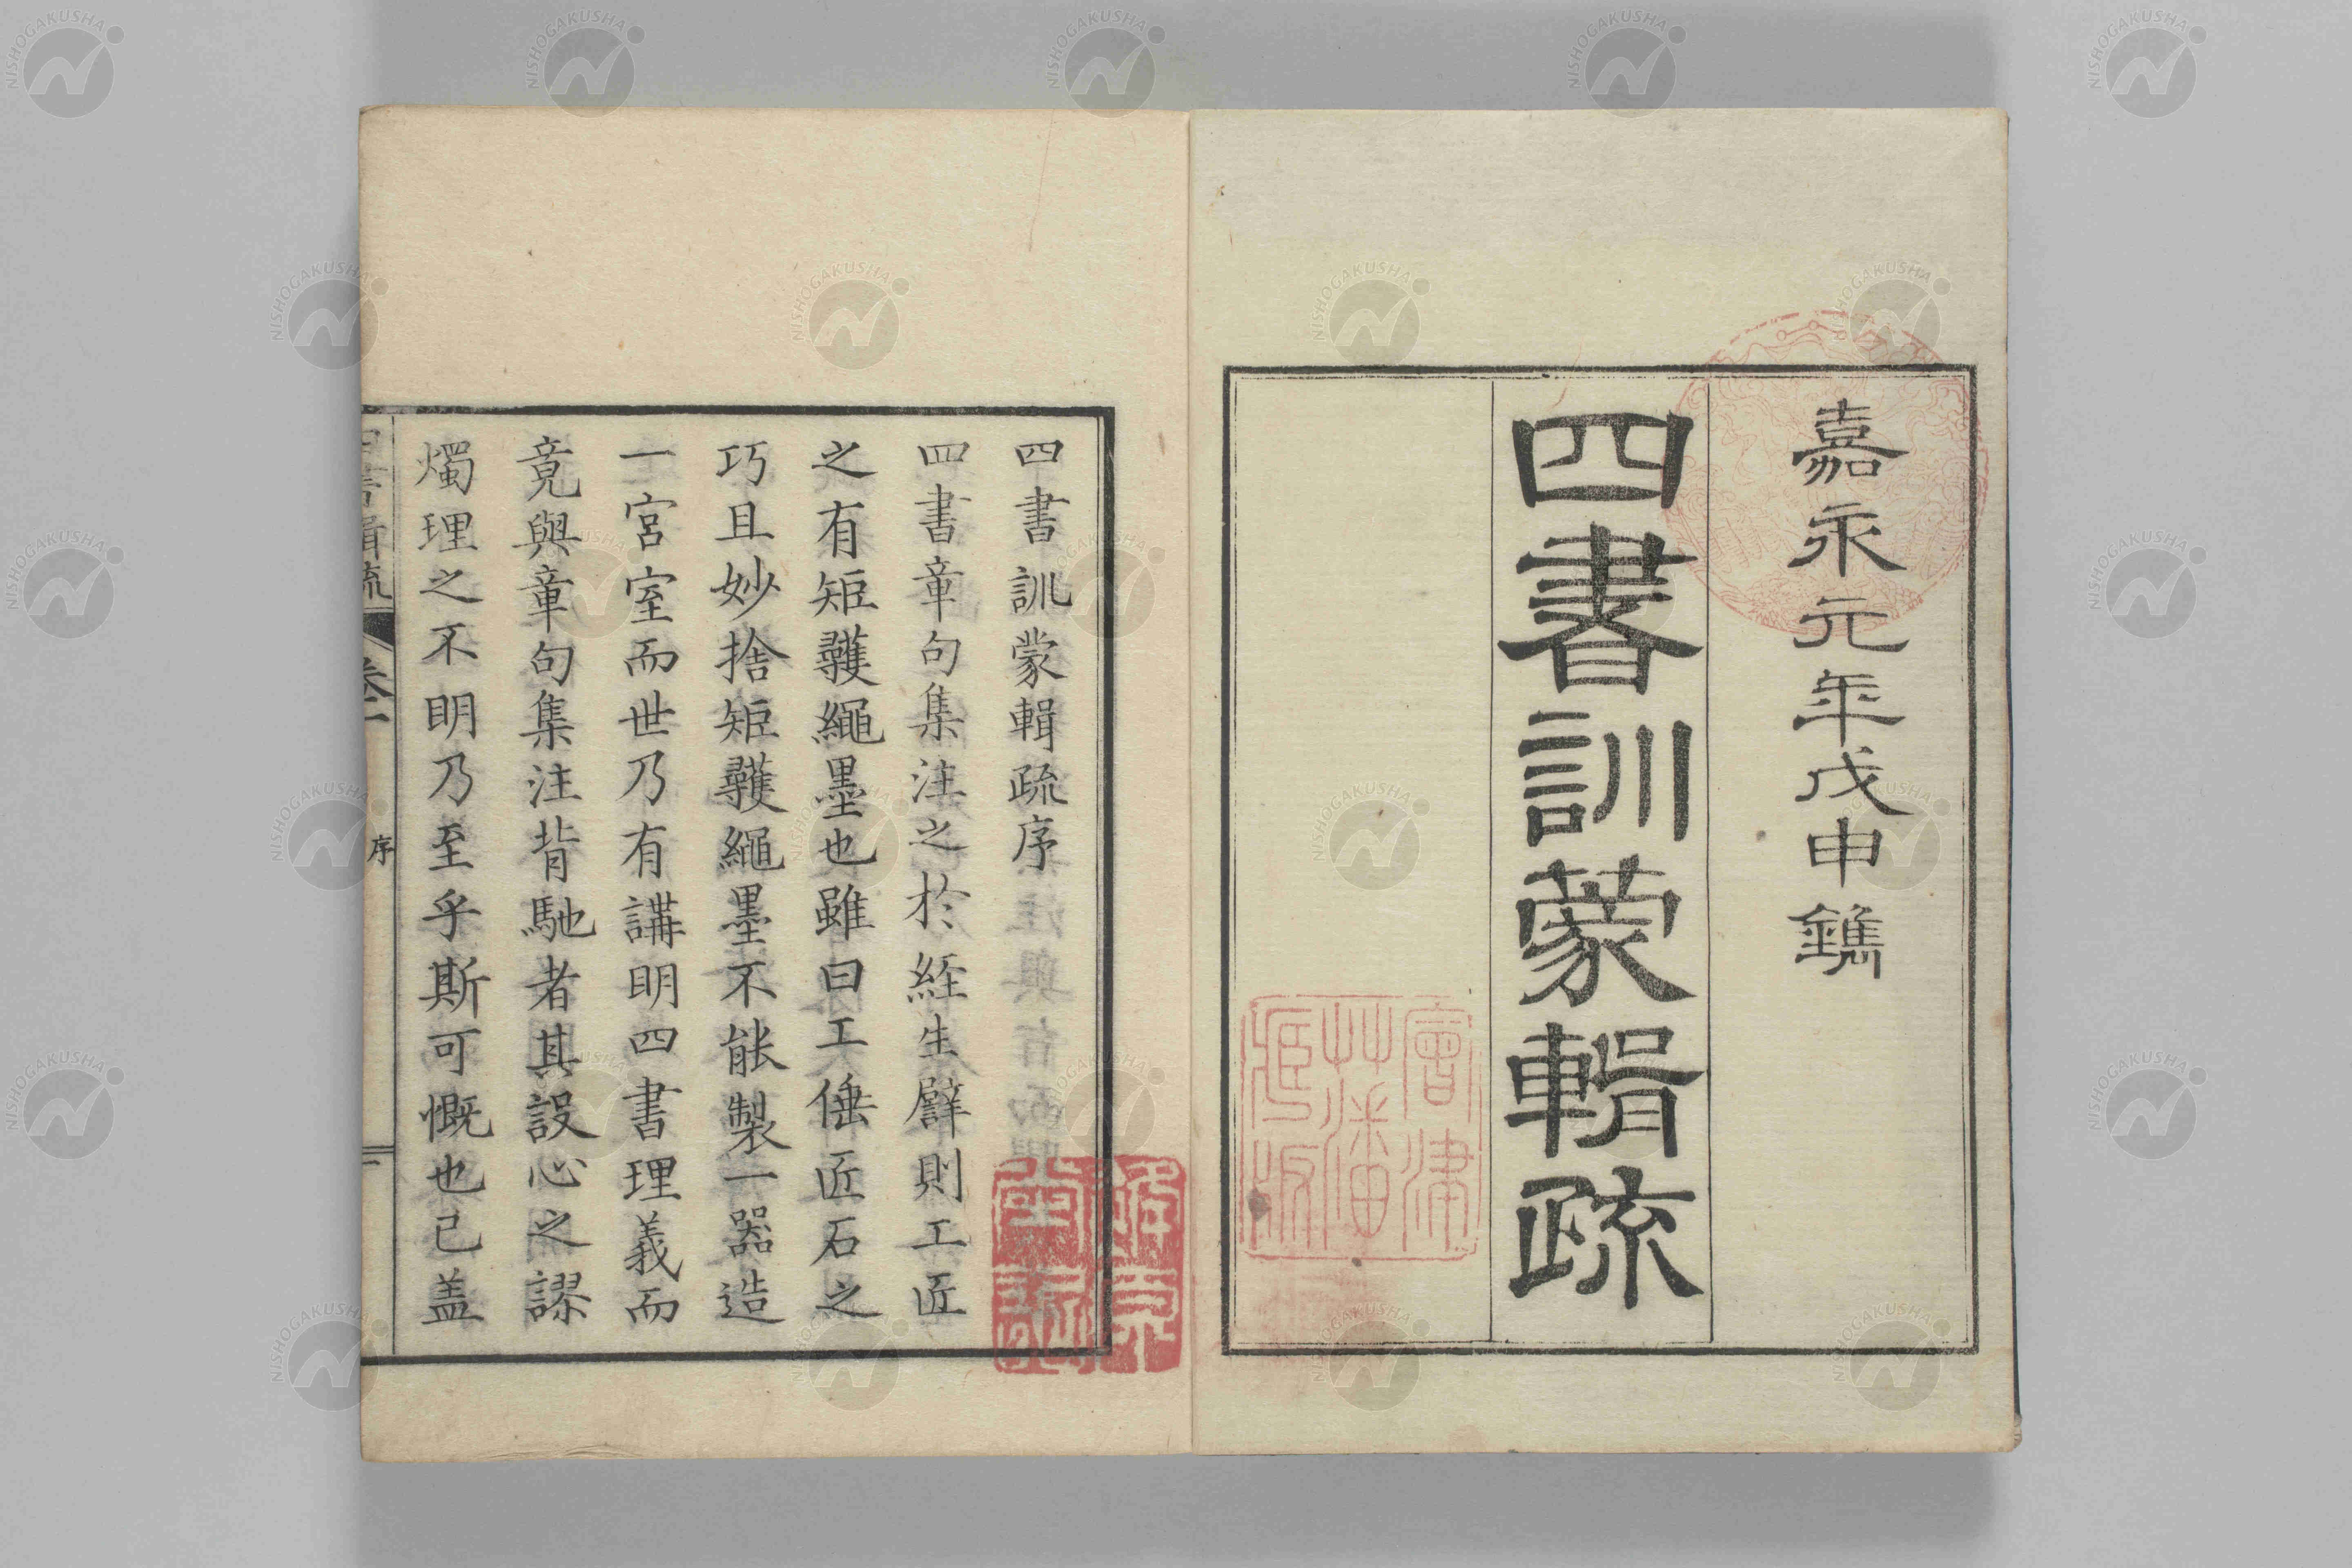 嘉永元年戊申鐫
四書訓蒙輯疏
會津
藩
四書訓蒙輯疏序
四書章句集注之於經生譬則工匠
之有矩彠繩墨也雖曰工倕匠石之
巧且妙捨矩彠繩墨不能製一器造
一宮室而世乃有講明四書理義而
竟與章句集注背馳者其設心之謬
燭理之不明乃至乎斯可慨也已蓋
四書輯疏
卷一
序
一
NISHOGAKUSHA